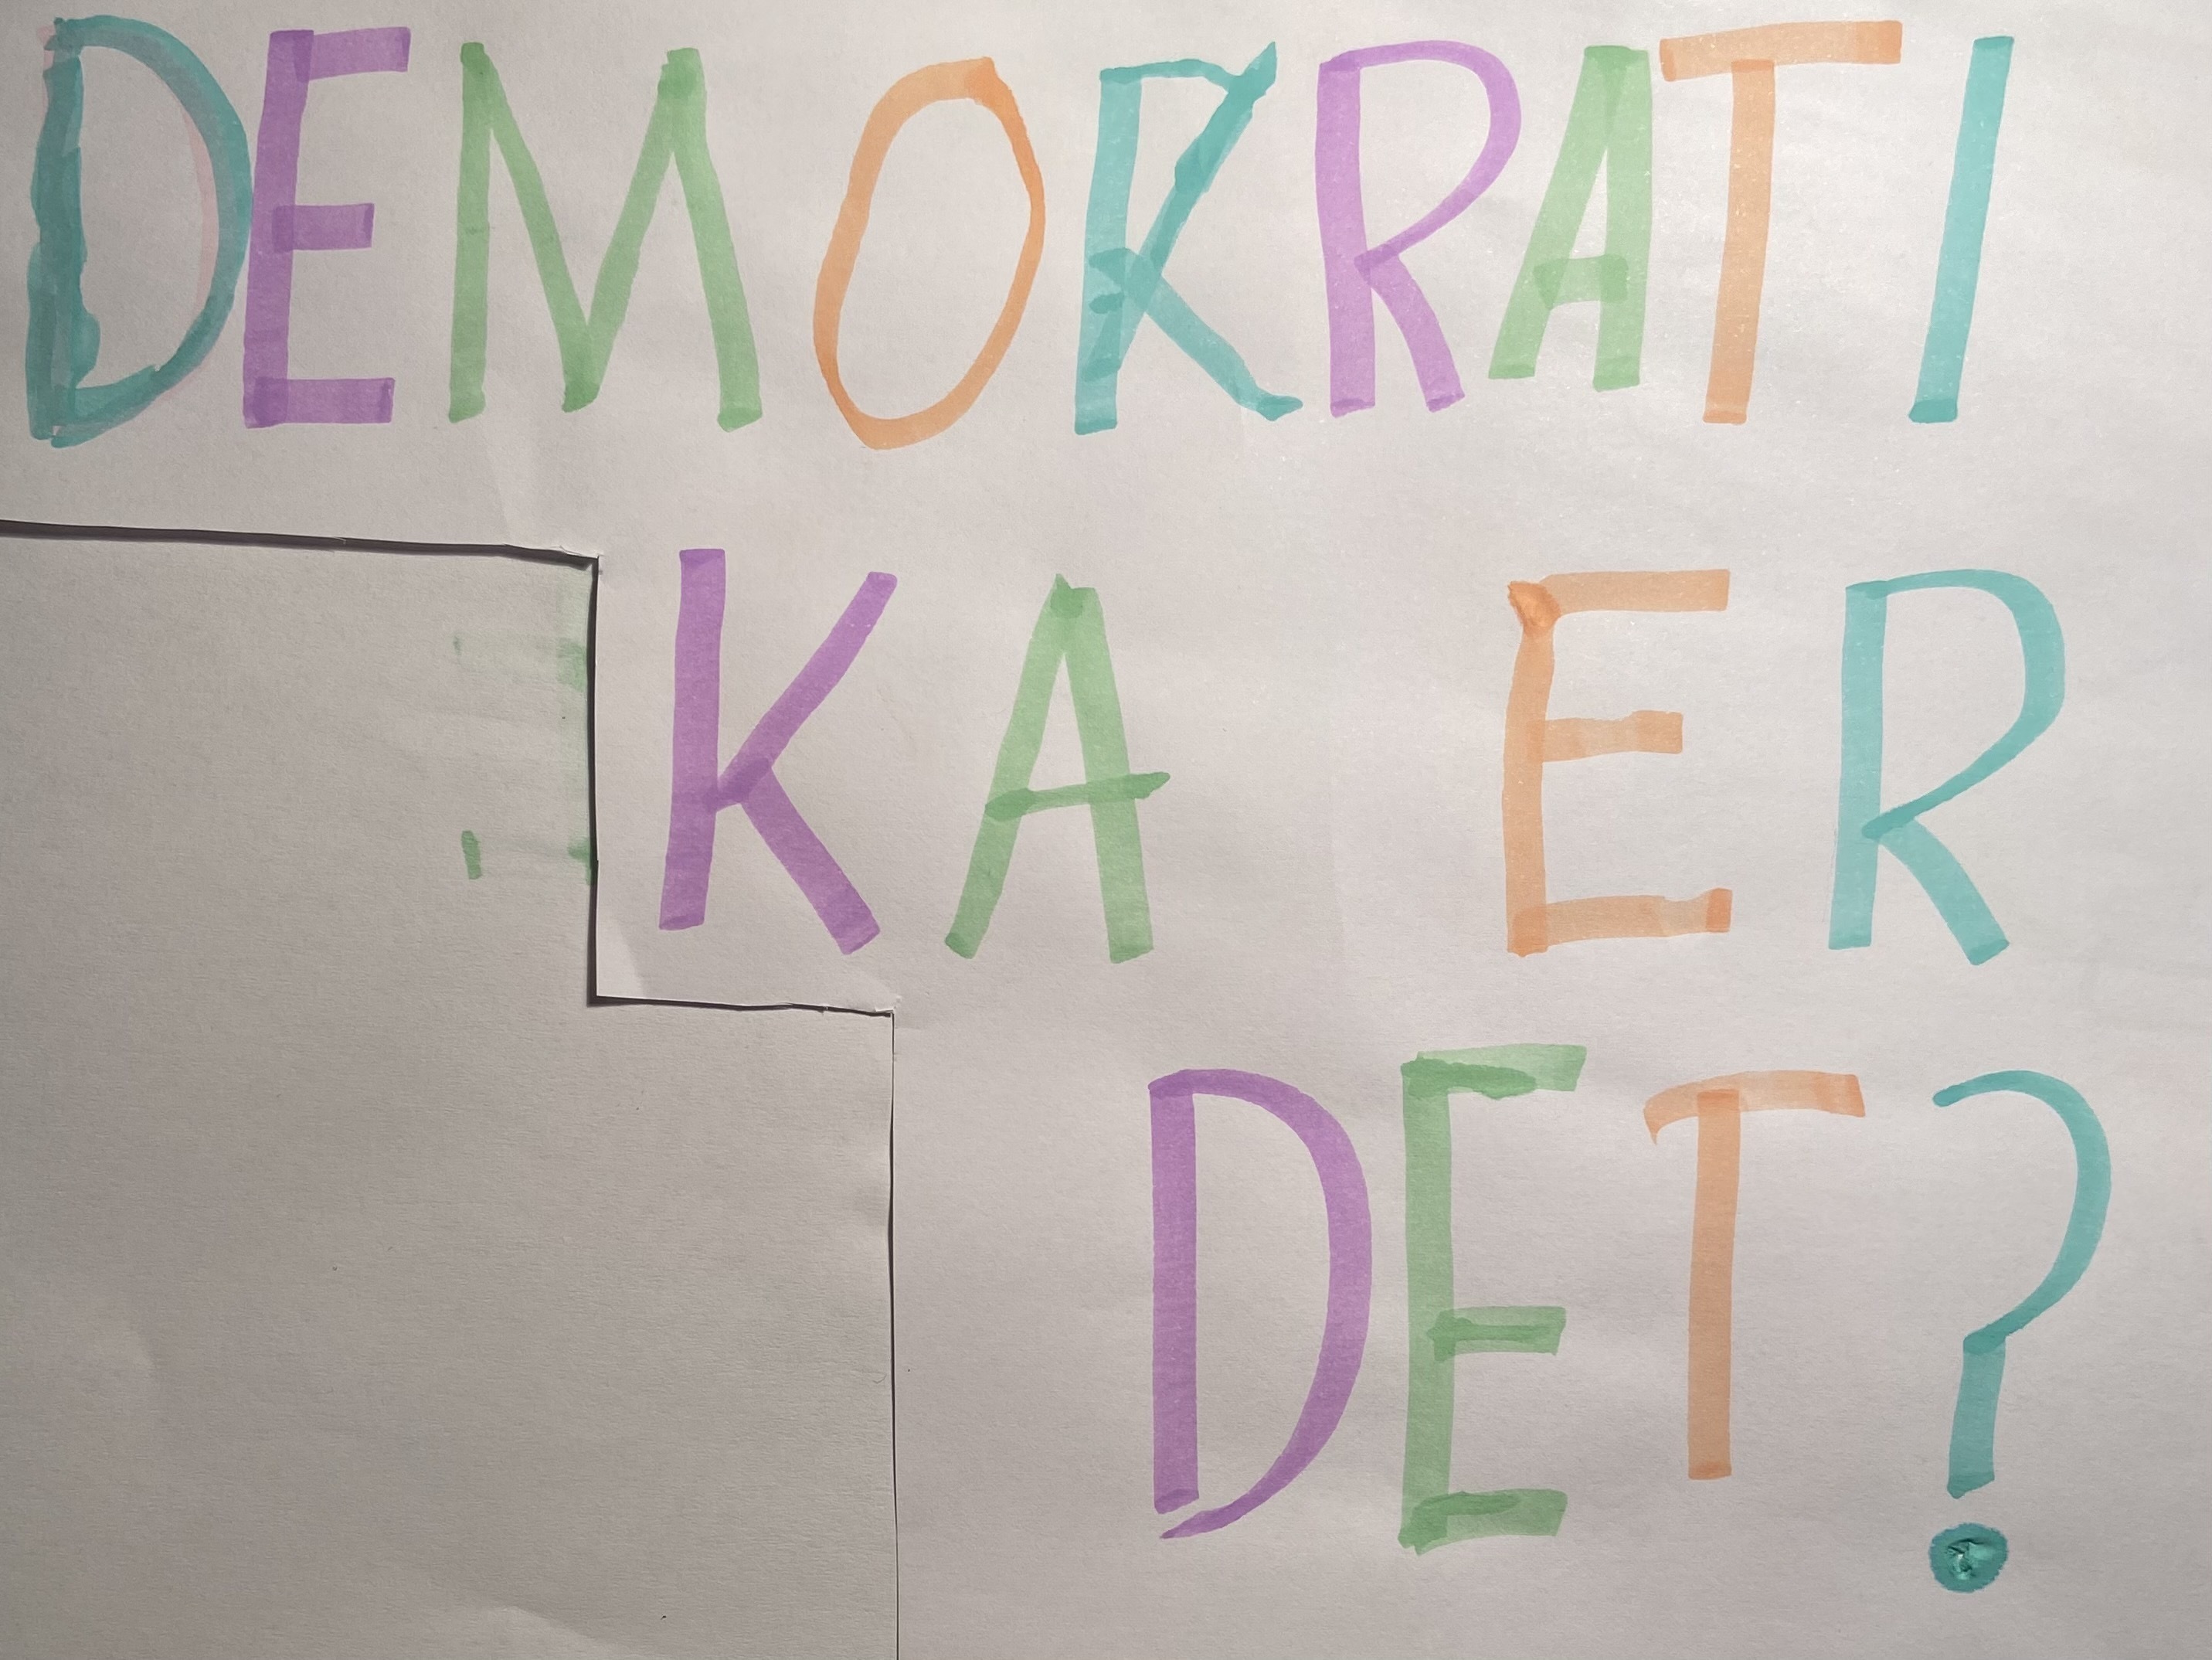 DEMOKRATI
KA ER
DET?